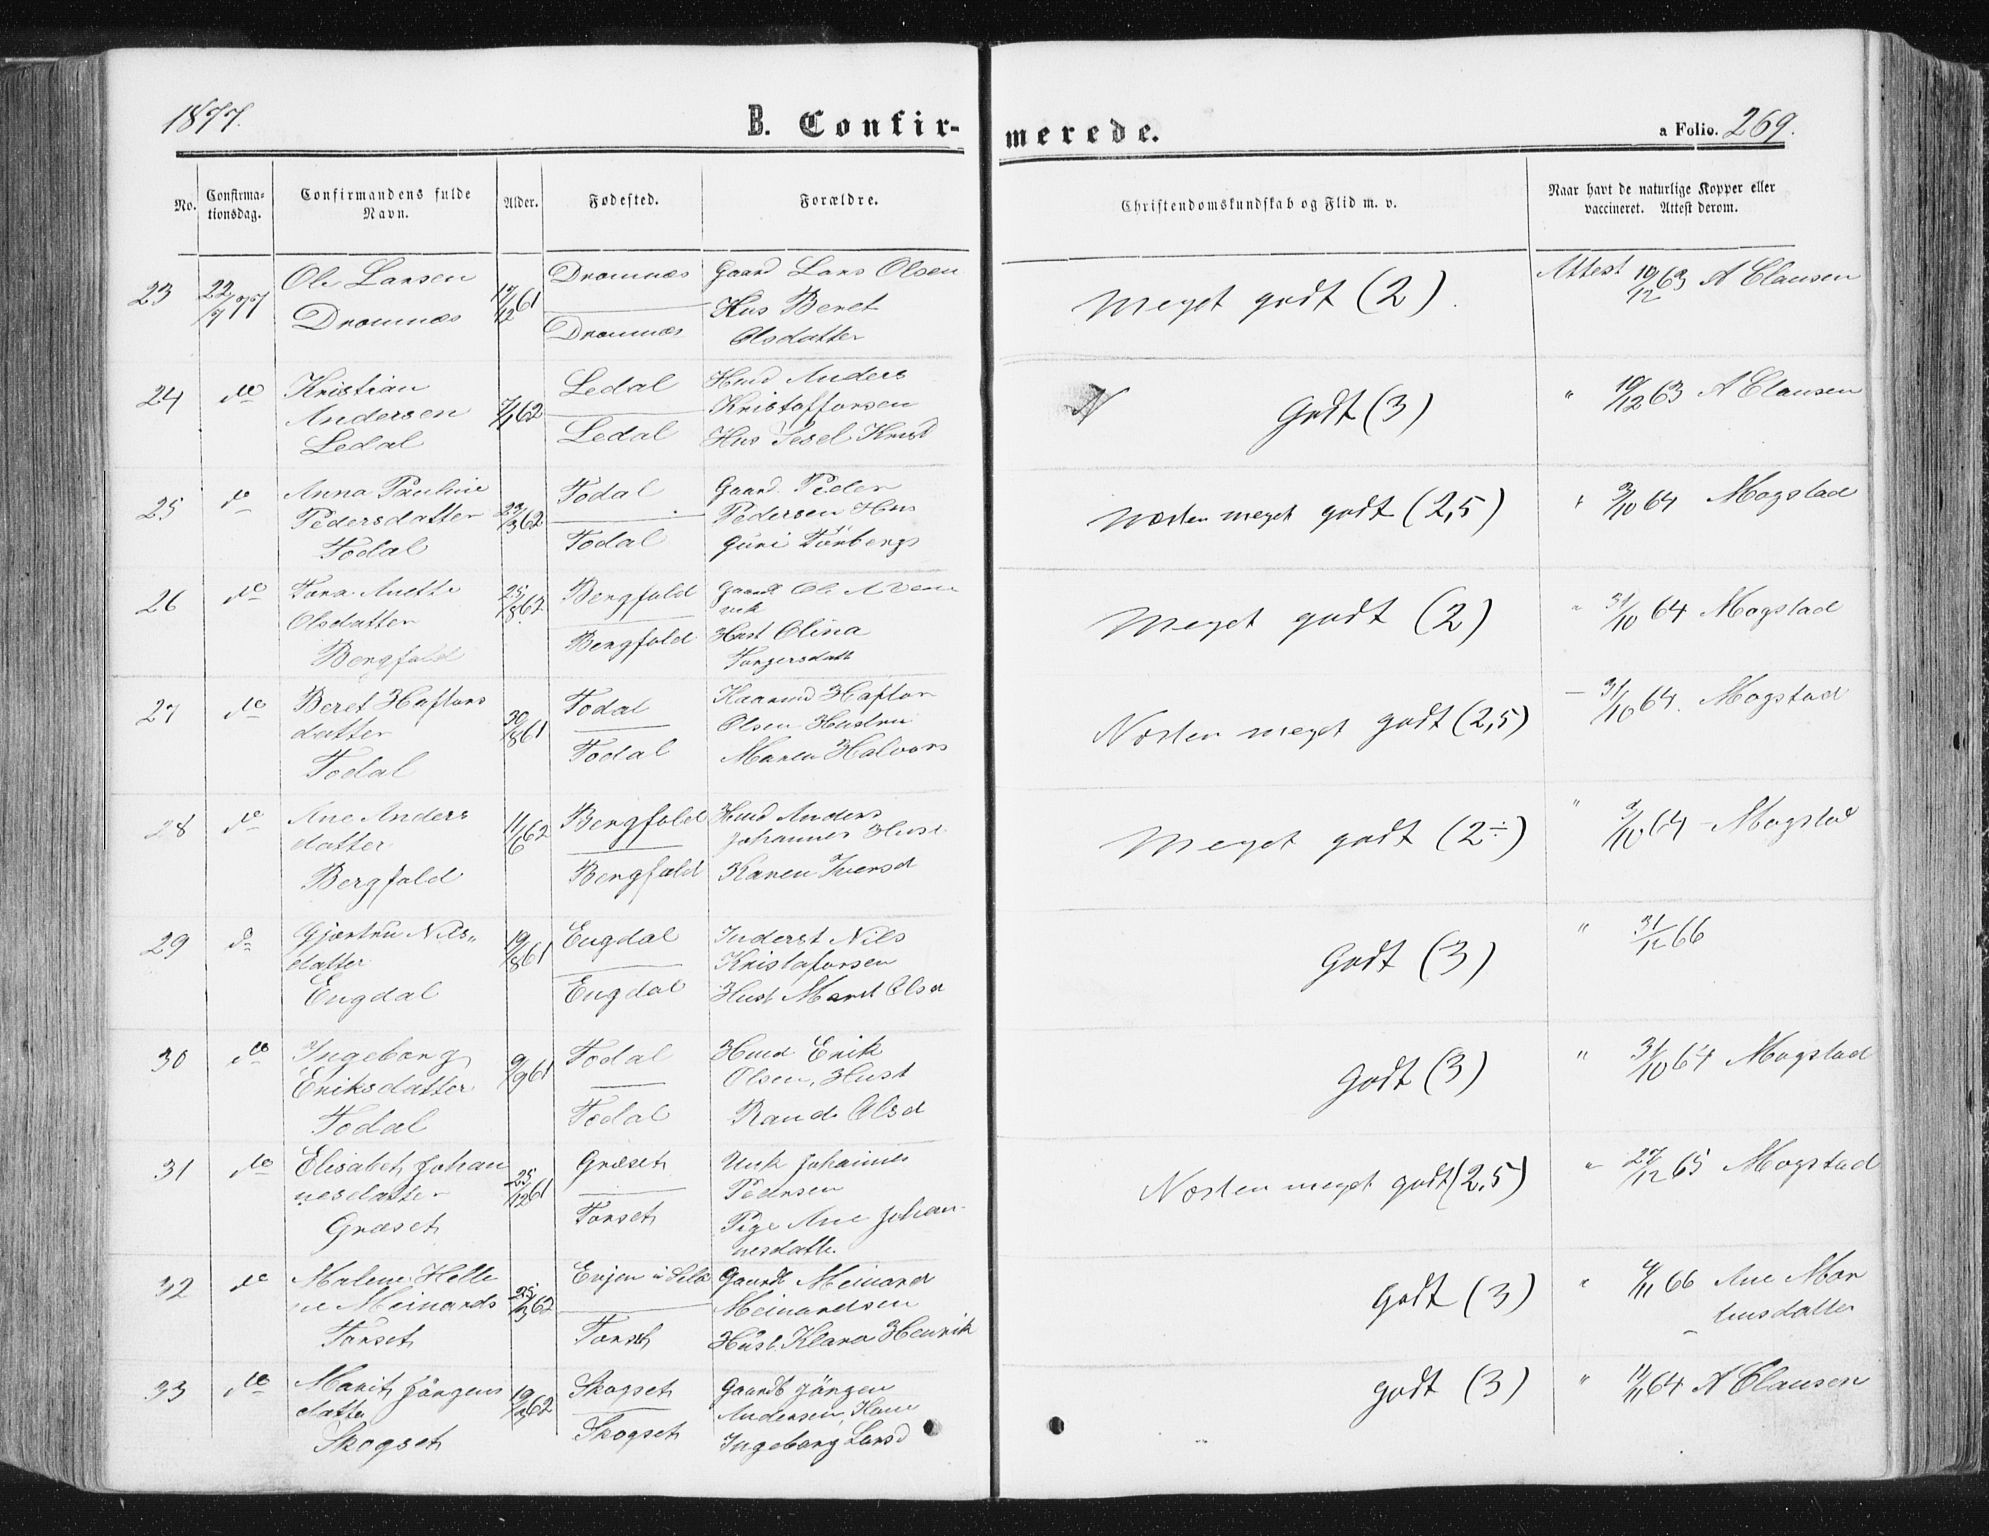 1877.
B. Confir-
merede.
a Folio. 269.
No.
Confirma-
tionsdag.
Confirmandens fulde
Navn.
Alder.
Fødested.
Forældre.
Christendomskundskab og Flid m. v.
Naar havt de naturlige Kopper eller
vaccineret. Attest derom.
23 22/7 77 Ole Larsen
Dromnæs
17/12 61
Dromnæs
Dromnæs
Gaard Lars Olsen
Hus Beret
Olsdatter
Meget godt (2).
Attest 10/12 63 A Clausen
24 do Kristian
Andersen
Ledal
7/1 62
Ledal
Ledal
Husd Anders
Kristoffersen
Hus Sesel Knud
Godt (3)
" 10/12 63 A Clausen
25 do Anna Pauline
Pedersdatter
Todal
23/3 62
Todal
Todal
Gaard. Peder
Pedersen Hus
Guri Torbergs
Næsten meget godt (2,5)
" 3/10 64 Mogstad
26 do Tora Anette
Olsdatter
Bergfald
25/8 62
Bergfald
Bergfald
Gaard Ole
Hust Olina
Torgersdatt
Meget godt (2)
" 31/10 64 Mogstad
27 do Beret Haftors
datter
Todal
30/8 61
Todal
Todal
Kaarmd Haftor
Olsen Hustru
Maren Halvors
Næsten meget godt (2,5)
– 31/10 64. Mogstad
28 do Ane Anders
datter
Bergfald
11/6 62
Bergfald
Bergfald
Husd Anders
Johannes Hust
Karen Iversd
Meget godt (2÷)
" 3/10 64 – Mogstad
29 do Gjertru Nils„
datter
Engdal
19/8 61
Engdal
Engdal
Inderst Nils
Kristofersen
Hust Marit Olsd
Godt (3)
" 31/12 66
30 do Ingeborg
Eriksdatter
Todal
9/9 61
Todal
Todal
Husd Erik
Olsen, Hust
Rand Olsd
Godt (3)
" 31/10 64 Mogstad
31 do Elisabet Johan
nesdatter
Græset
25/12 61
Græset
Torset
Unk Johannes
Pedersen
Pige Ane Johan
nesdatte.
Næsten meget godt (2,5)
" 27/12 65 Mogstad
32 do Malene Helle
ne Meinards
Torset
25/3 62
Torset
Gaardt Meinard
Meinardsen
Hust. Klara Henrik
Godt (3)
" 66 Ane Mor
tensdatter
33 do Marit Jörgens
datter
Skogset
Skogset
Skogset
Gaardt Jörgen
Andersen, Kone
Ingeborg Larsd
godt (3)
" 11/11 64 A Clausen